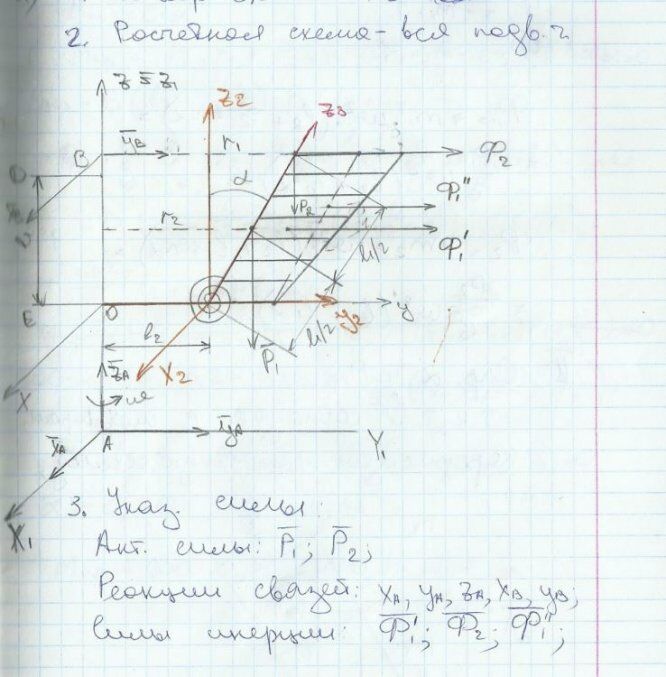 2. Расчетная схема - вся подв. г.
Z ≡ Z₁
Z₂
Z₃
B
y̅B
r₁
Φ₂
α
P₂
Φ₁''
r₂
Φ₁'
l₁/2
E
O
y₂
y
l₂
l₁/2
P̅₁
X
X₂
z̅A
A
y̅A
Y₁
x̅A
X₁
3. Указ. силы:
Акт. силы: P̅₁; P̅₂;
Реакции связей: xA, yA, zA, xB, yB;
Силы инерции: Φ̅₁'; Φ̅₂; Φ̅₁'';